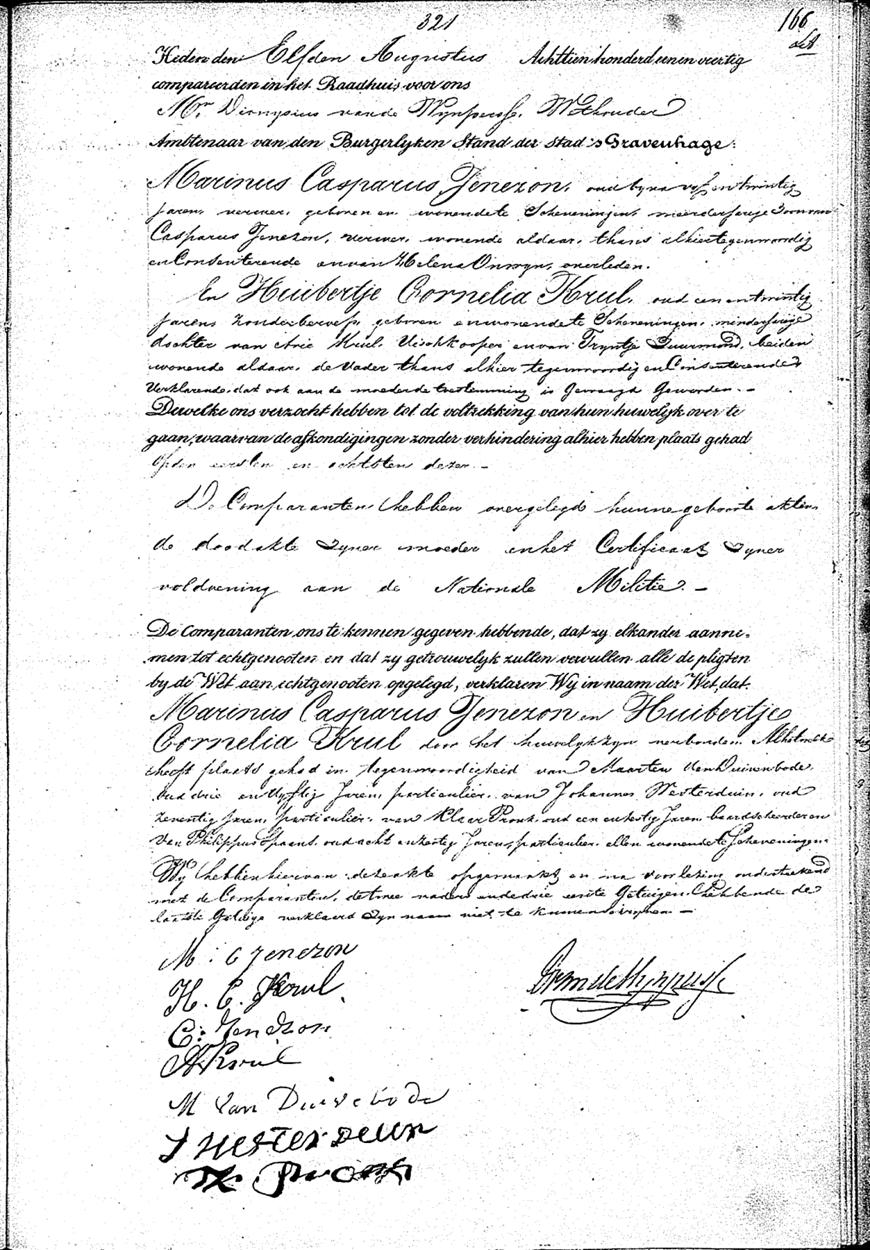 321
166
Heden den Elfden Augustus Achttien honderd een en veertig
compareerden in het Raadhuis voor ons
Mr. Dionysius van de Wijnpersse, Wethouder
Ambtenaar van den Burgerlyken Stand der Stad 's Gravenhage:
Marinus Casparus Jenezon, oud byna vyf en twintig
jaren, verwer, geboren en wonende te Scheveningen, meerderjarige Zoon van
Casparus Jenezon, verwer, wonende aldaar, thans alhier tegenwoordig
en Consenterende en van Helena Onwyn, overleden.
En Huibertje Cornelia Krul, oud een en twintig
jaren, zonder beroep, geboren en wonende te Scheveningen, minderjarige
dochter van Arie Krul, Vischkooper en van Tryntje Buurmond, beiden
wonende aldaar, de Vader thans alhier tegenwoordig en Consenterende
verklarende, dat ook aan de moeder de toestemming is Gevraagd Geworden. —
Dewelke ons verzocht hebben tot de voltrekking van hun huwelyk over te
gaan, waarvan de afkondigingen zonder verhindering alhier hebben plaats gehad
op den eersten en achtsten dezer —
De Comparanten hebben overgelegd hunne geboorte akten,
de doodakte zyner moeder en het Certificaat zyner
voldoening aan de Nationale Militie. —
De Comparanten ons te kennen gegeven hebbende, dat zy elkander aanne-
men tot echtgenooten en dat zy getrouwelyk zullen vervullen alle de pligten
by de Wet aan echtgenooten opgelegd, verklaren Wy in naam der Wet, dat
Marinus Casparus Jenezon en Huibertje
Cornelia Krul door het huwelyk zyn verbonden. Al hetwelk
heeft plaats gehad in tegenwoordigheid van Maarten van Duivenbode,
oud drie en vyftig Jaren, particulier, van Johannes Westerduin, oud
zeventig Jaren, particulier, van Klaas Pronk, oud een en zestig Jaren, baardscheerder en
van Philippus Spaans, oud acht en zestig Jaren, particulier, allen wonende te Scheveningen.
Wy hebben hiervan deze akte opgemaakt en na voorlezing onderteekend
met de Comparanten, de twee vaders en de drie eerste Getuigen, hebbende de
laatste Getuige verklaard zyn naam niet te kunnen schryven —
M: C Jenezon
H. C. Krul.
C: Jenezon
A Krul
M van Duivebode
J Westerduin
K. Pronk